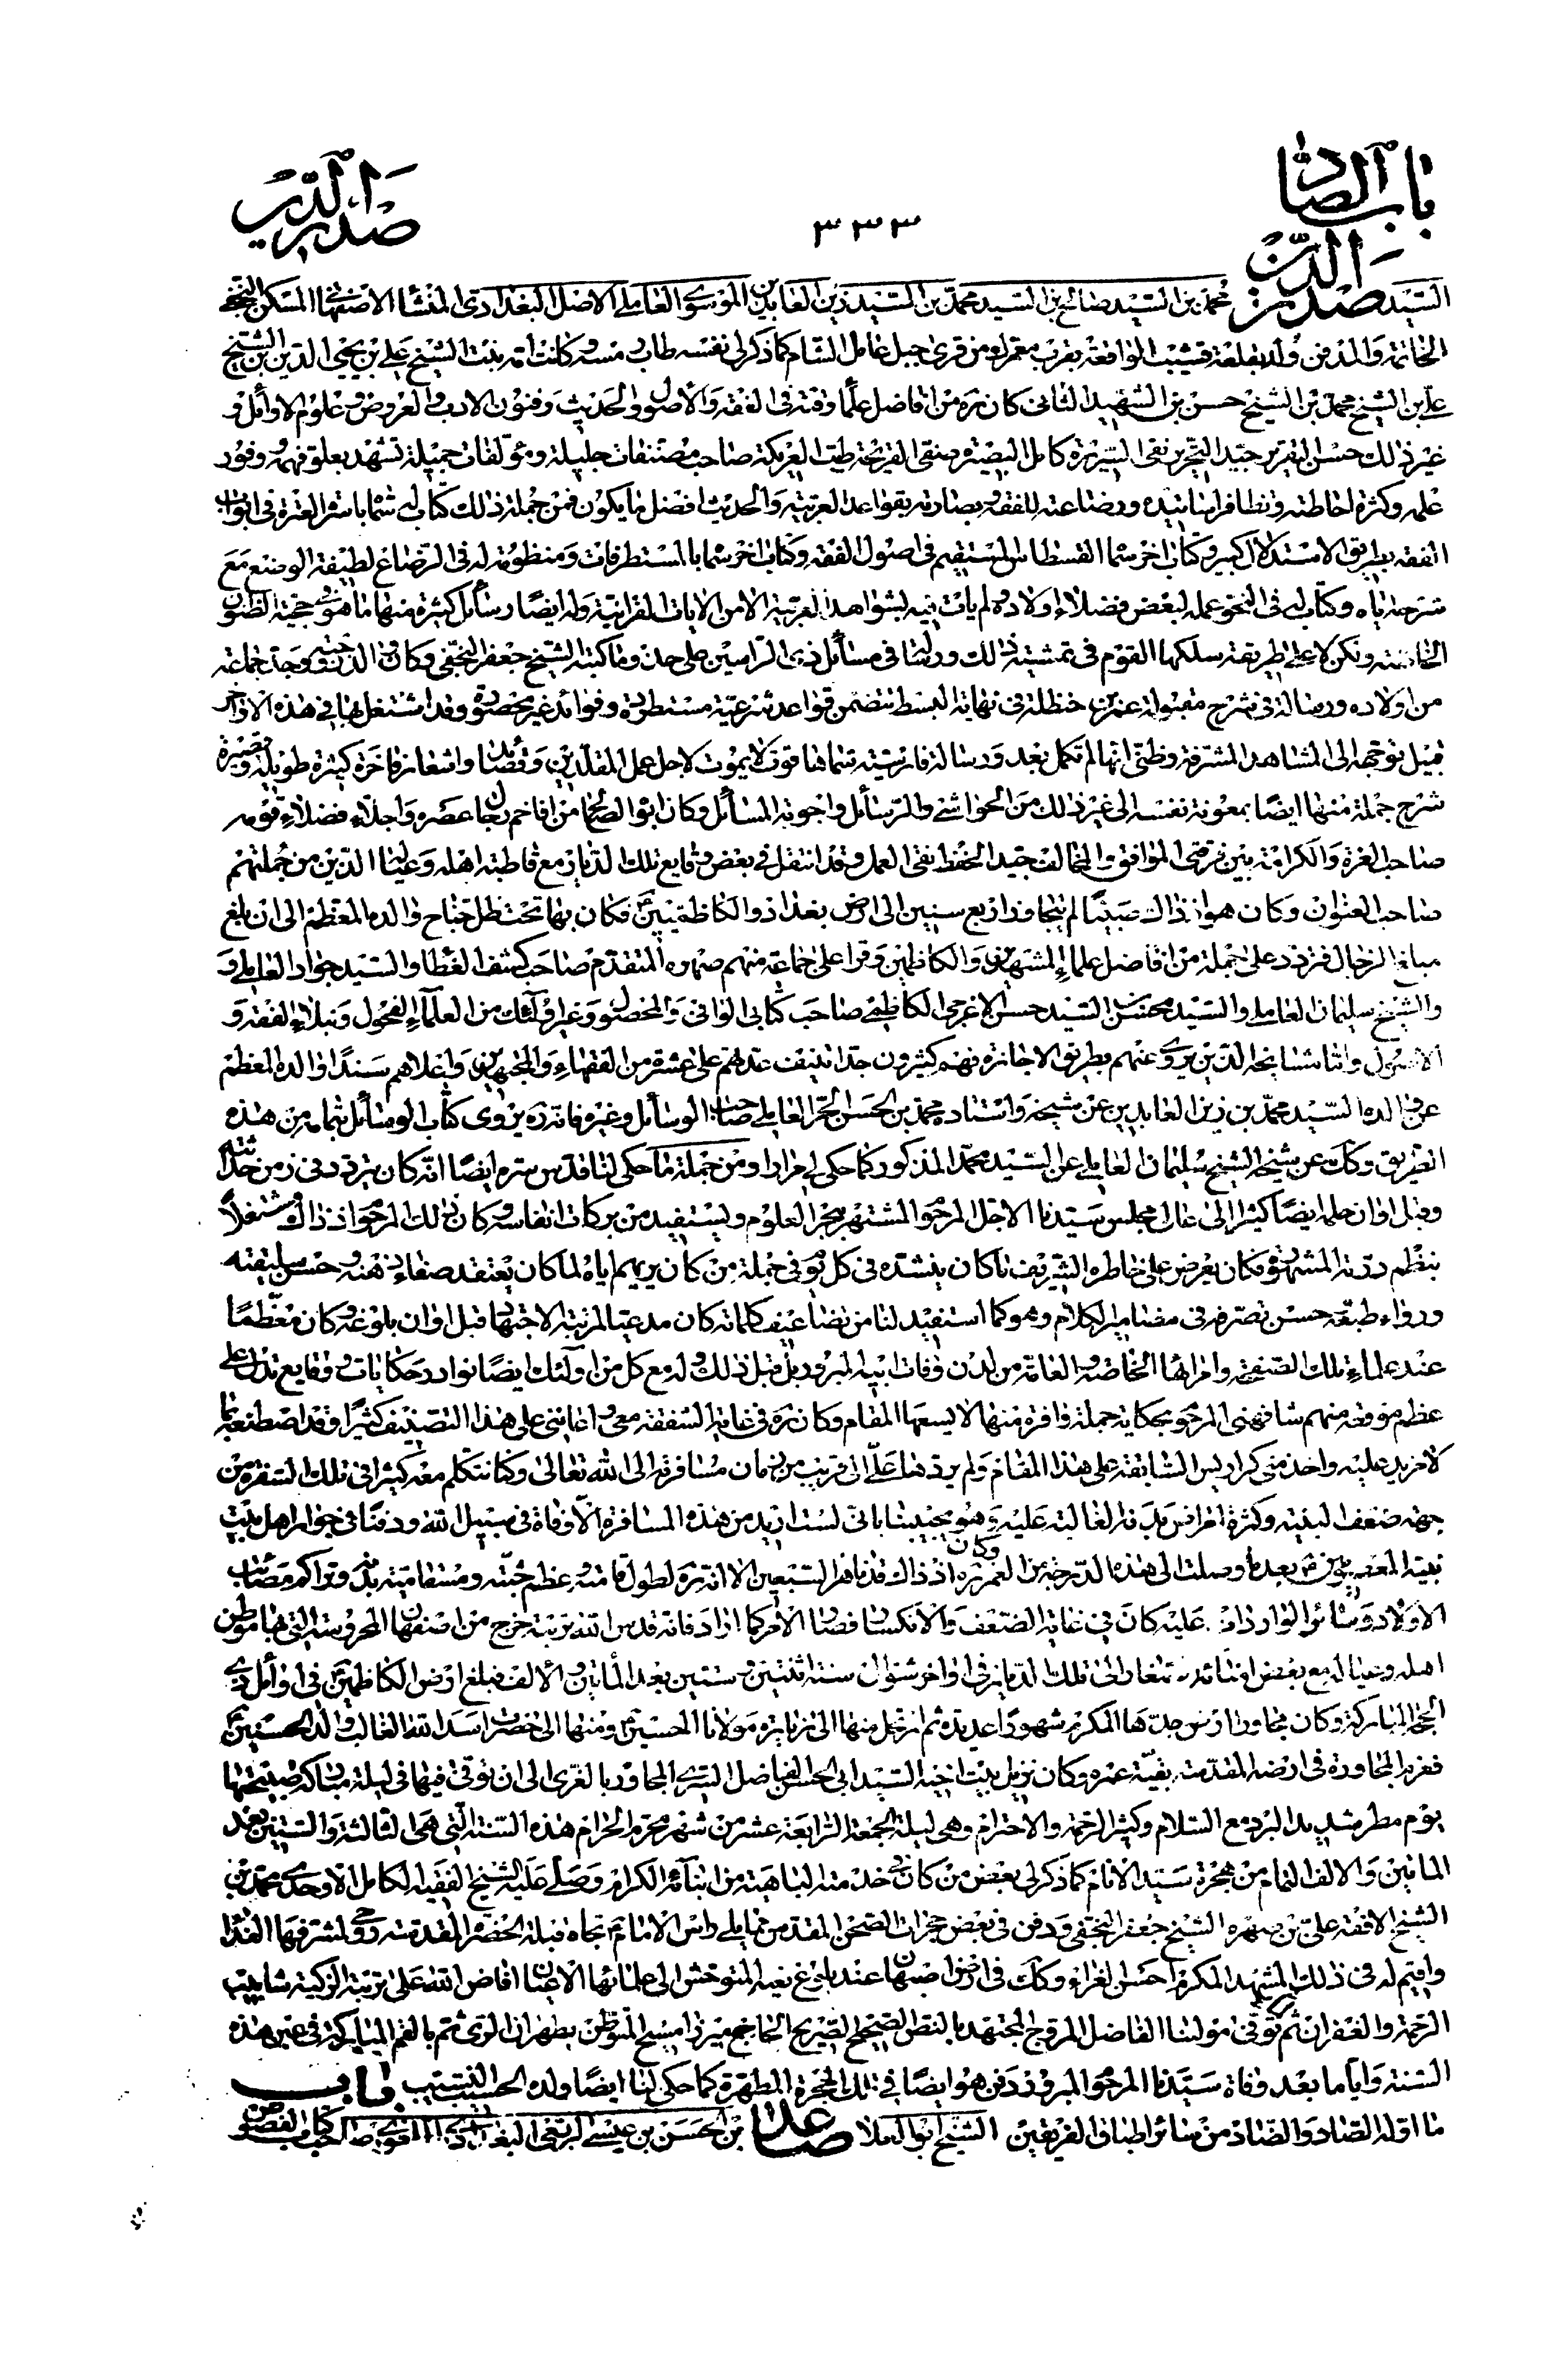 باب الصاد
٣٣٣
صدر الدين
السيد صدر الدين محمد بن السيد صالح بن السيد محمد بن السيد زين العابدين الموسوي العاملي الاصل البغدادي المنشأ الاصفهاني المسكن النجفي
الخاتمة والمدفن ولد بقلعة قشيب الواقعة بقرب معركة من قرى جبل عامل الشام كما ذكر لي نفسه طاب رمسه وكانت امه بنت الشيخ علي بن محيي الدين بن الشيخ
علي بن الشيخ محمد بن الشيخ حسن بن الشهيد الثاني كان ره من افاضل علماء وقته في الفقه والاصول والحديث وفنون الادب والعروض وعلوم الاوائل و
غير ذلك حسن التقرير جيد التحرير نقي السريرة كامل البصيرة منقى القريحة طيب العريكة صاحب مصنفات جليلة ومؤلفات جميلة تشهد بعلو فهمه ووفور
علمه وكثرة احاطته وتظافر اسانيده ورضاعته للفقه وبصارته بقواعد العربية والحديث افضل ما يكون فمن جملة ذلك كتاب له سماه باسرة العترة في ابواب
الفقه بطريق الاستدلال كبير وكتاب اخر سماه القسطاس المستقيم في اصول الفقه وكتاب اخر سماه بالمستطرفات ومنظومة له في الرضاع لطيفة الوضع مع
شرحه اياه وكتاب له في النحو عمله لبعض فضلاء اولاده لم يات فيه بشواهد العربية الا من الايات القرانية وله ايضا رسائل كثيرة منها ما هو في حجية الظنون
الخاصة ولكن لا على طريقة سلكها القوم في تمشية ذلك ورسالتنا في مسائل ذي الراسين على حدة وما كتبه الشيخ جعفر النجفي وكان والد ختنه وجد جماعة
من اولاده ورسالة في شرح مقبولة عمر بن حنظلة في نهاية البسط تتضمن قواعد شرعية مستطرفة وفوائد غير محصورة وقد اشتغل بها في هذه الاواخر
قبيل توجهه الى المشاهد المشرفة وظني انها لم تكمل بعد ورسالة فارسية سماها قوت لا يموت لاجل عمل المقلدين وقصائد واشعار فاخرة كثيرة طويلة وقصيرة
شرح جملة منها ايضا بمعونة نفسه الى غير ذلك من الحواشي والرسائل واجوبة المسائل وكان ابوه الصالح من افاخم رجال عصره واجلاء فضلاء قومه
صاحب العزة والكرامة بين مرضى الموافق والمخالف جيد الحفظ نقي العمل وقد انتقل في بعض وقايع تلك الديار مع قاطبة اهله وعياله الذين من جملتهم
صاحب العنوان وكان هو اذ ذاك صبيا لم يتجاوز اربع سنين الى ارض بغداد والكاظميين فكان بها تحت ظل جناح والده المعظم الى ان بلغ
مبالغ الرجال فتردد على جملة من افاضل علماء المشهدين والكاظمين وقرا على جماعة منهم صهره المتقدم صاحب كشف الغطا والسيد جواد العاملي و
والشيخ سليمان العاملي والسيد محسن بن السيد حسن الاعرجي الكاظمي صاحب كتابي الوافي والمحصول وغير اولئك من العلماء الفحول ونبلاء الفقه و
الاصول واما مشايخه الذين يروي عنهم بطريق الاجازة فهم كثيرون جدا تنيف عدتهم على عشرة من الفقهاء والمجتهدين واعلاهم سندا والده المعظم
عن والده السيد محمد بن زين العابدين عن شيخه واستاده محمد بن الحسن الحر العاملي صاحب الوسائل وغيره فانه ره يروي كتاب الوسائل بتمامه من هذه
الطريق وكان عن شيخه الشيخ سليمان العاملي عن السيد محمد المذكور كما حكى لي مرارا ومن جملة ما حكى لنا قدس سره ايضا انه كان يتردد في زمن حداثته
وقبل اوان حلمه ايضا كثيرا الى عالي مجلس سيدنا الاجل المرحوم المشتهر ببحر العلوم ويستفيد من بركات انفاسه وكان ذلك المرحوم اذ ذاك مشتغلا
بنظم درته المشهورة فكان يعرض على خاطره الشريف ما كان ينشده في كل يوم في جملة من كان يريهم اياه لما كان يعتقد صفاء ذهنه وحسن سليقته
ورواء طبعه حسن تصرفه في مضامير الكلام وهو كما استفيد لنا من تضاعيف كلماته كان مدعيا لمرتبة الاجتهاد قبل اوان بلوغه وكان معظما
عند علماء تلك الصفحة وامرائها الخاصة والعامة من لدن وفات ابيه المبرور بل قبل ذلك وله مع كل من اولئك ايضا نوادر حكايات ووقايع تدل على
عظم موقعه منهم شافهني المرحوم بحكاية جملة وافرة منها لا يسعها المقام وكان ره في غاية الشفقة معي واعانني على هذا التصنيف كثيرا وقد اصطنعه بما
لا مزيد عليه واخذ مني كراريس السابقة على هذا المقام ولم يردها علي الى قريب من زمان مسافرته الى الله تعالى وكنا نتكلم معه كثيرا في تلك السفرة من
جهة ضعف البنية وكثرة امراض بدنه الغالبة عليه وهو يجيبنا باني لست اريد من هذه المسافرة الا وفاة في سبيل الله ودفنا في جوار اهل بيت
نبيه المعصومين بعد ما وصلت الى هذه الدرجة من العمر وكان ره اذ ذاك قد ناهز السبعين الا انه ره لطول قامته وعظم جثته ومسقامية بدنه وتراكم مصائب
الاولاد وسائر الواردات عليه كان في غاية الضعف والانكسار فصار الامر كما اراد فانه قدس الله تربته خرج من اصفهان المحروسة التي بها موطن
اهله وعياله مع بعض ابنائه متعاليا الى تلك الديار في اواخر شوال سنة اثنتين وستين بعد المأتين والالف فبلغ ارض الكاظمين في اوائل ذي
الحجة المباركة وكان مجاورا ارض جدها المكرم شهورا عديدة ثم ارتحل منها الى زيارة مولانا الحسين ومنها الى حضرة اسد الله الغالب والد الحسنين
فعزم المجاورة في ارضه المقدسة بقية عمره وكان نزيل بيت اخيه السيد ابي الحسن الفاضل السري المجاور بالغري الى ان توفي فيها في ليلة مباركة صبيحتها
يوم مطر شديد البرد مع السلام وكثير الرحمة والاحترام وهي ليلة الجمعة الرابعة عشر من شهر محرم الحرام هذه السنة التي هي الثالثة والستين بعد
المأتين والالف التمام من هجرة سيد الانام كما ذكر لي بعض من كان في خدمته النباهية من ابنائه الكرام وصلى عليه الشيخ الفقيه الكامل الاوحدي محمد بن
الشيخ الافقه علي بن صهره الشيخ جعفر النجفي ودفن في بعض حجرات الصحن المقدس مما يلي راس الامام تجاه قبلة الحضرة المقدسة روحي لمشرفها الفدا
واقيم له في ذلك المشهد المكرم احسن العزاء وكان في ارض اصبهان عند بلوغ نعيه المتوحش الى علمائها الاعيان افاض الله على تربته الزكية شابيب
الرحمة والغفران ثم توفي مولينا الفاضل المروج المجتهد بالنص الصحيح الصريح الحاج ميرزا مسيح المتوطن بطهران الري ثم بالقم المباركة في عين هذه
السنة واياما بعد وفاة سيدنا المرحوم المبرور ودفن هو ايضا في تلك الحجرة المطهرة كما حكى لنا ايضا ولده الحسيب النسيب باب
ما اوله الصاد والضاد من سائر اطباق الفريقين الشيخ ابو العلاء صاعد بن الحسن بن عيسى الربعي البغدادي اللغوي صاحب كتاب الفصوص